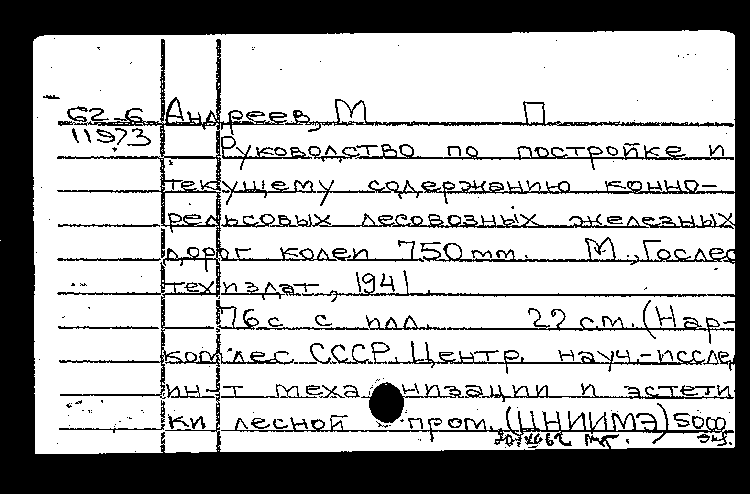 62-6 Андреев, М П
11973
Руководство по постройке и
текущему содержанию конно-
рельсовых лесовозных железных
дорог колеи 750 mm. М., Гослес
техиздат, 1941.
76 с с илл. 22 см. (Нар-
комлес СССР. Центр. науч.-иссле
ин-т механизации и эстети
ки лесной пром. (ЦНИИМЭ) 5000
экз.